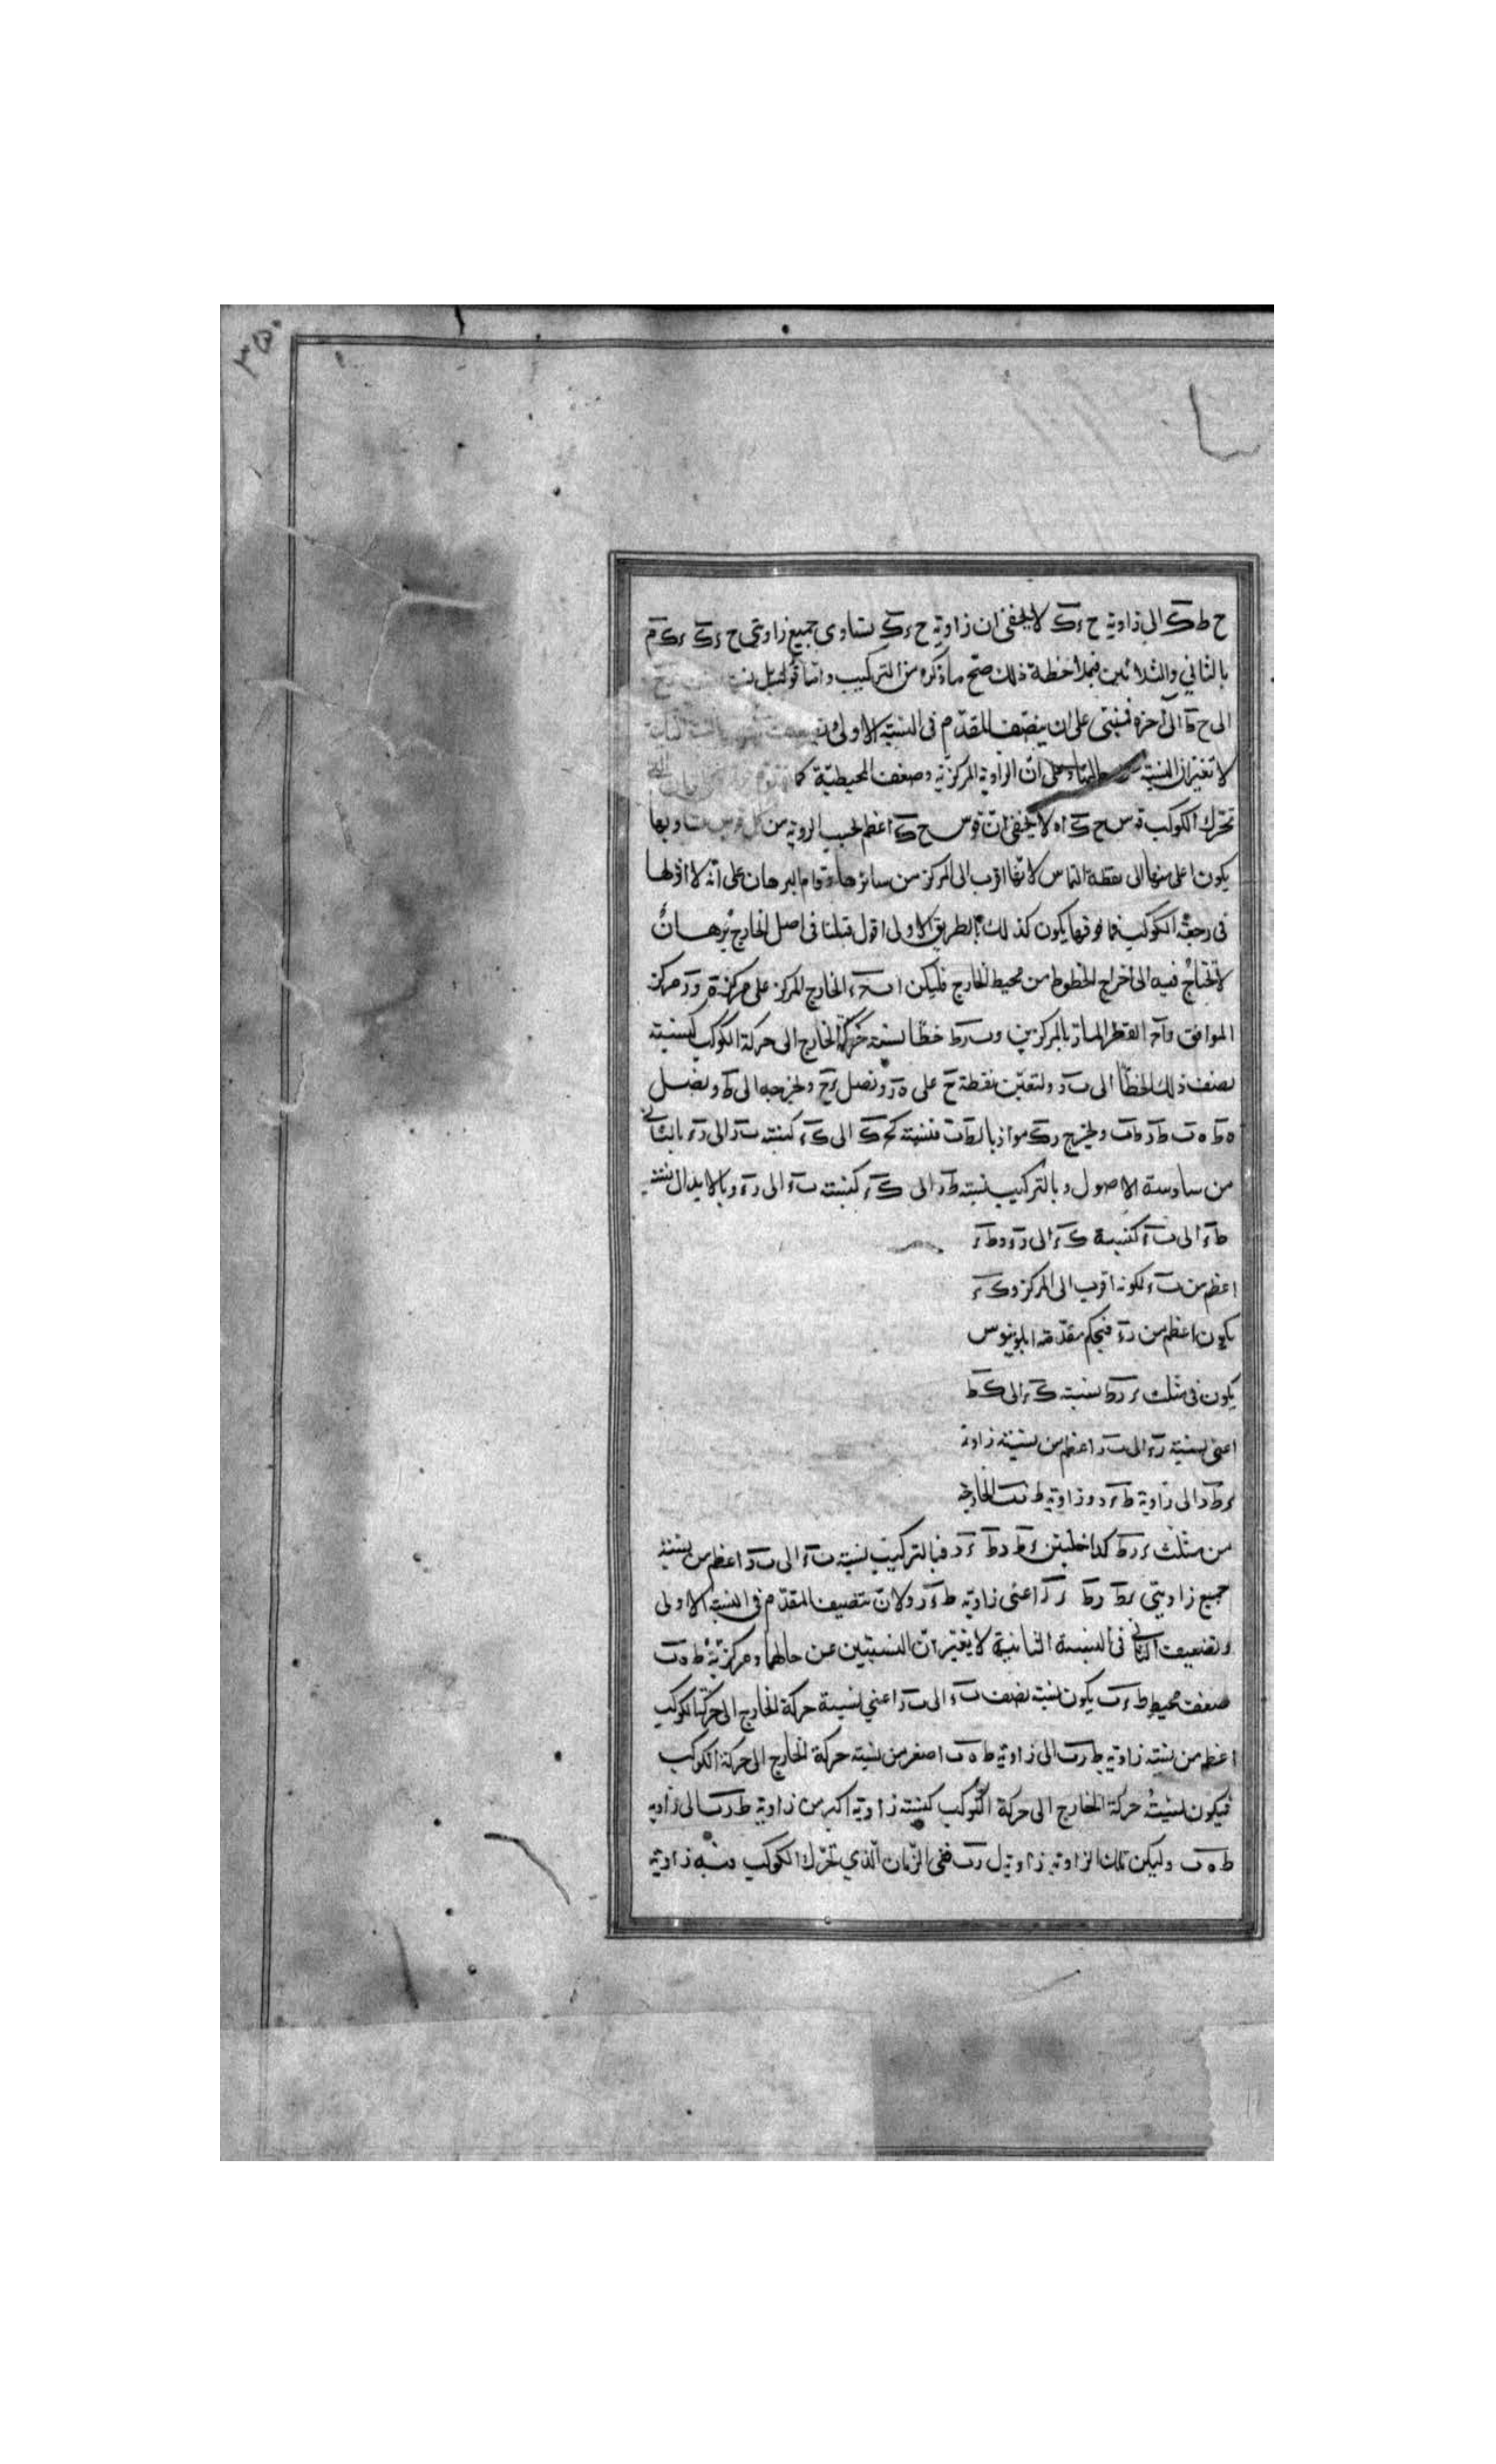 ٣٥٠
ح ط ك الى زاوية ح ء ك لا يخفى ان زاوية ح ء ك تساوى جميع زاويتى ح ء ك ء ك م
بالثانى والثلاثين فبملاحظة ذلك صح ما ذكره من التركيب واما قوله بل
الى ح ك الى آخره فمبنى على ان ينصف المقدم فى النسبة الاولى
لا تغيران النسبة وعلى ان الزاوية المركزية وضعف المحيطية كما
تحرك الكوكب قوس ح ك اه لا يخفى ان قوس ح ك اعظم بحسب الروية من كل قوس تساويها
يكون اعلى منها الى نقطة التماس لانها اقرب الى المركز من سائرها وقوام البرهان على انه لا اقل لها
فى رجعة الكوكب فما فوقها يكون كذلك بالطريق الاولى اقول قبلنا فى اصل الخارج برهان
لا نحتاج فيه الى اخراج الخطوط من محيط الخارج فليكن ا ب ح ء الخارج المركز على مركز ه و ر مركز
الموافق و ا ح القطر المار بالمركزين و ب ر ط خطا نسبة حركة الخارج الى حركة الكوكب كنسبة
نصف ذلك الخط الى ب ر ولتعين نقطة ح على ه ر ونصل ء ح ونخرجه الى ط ونصل
ه ط ه ب ط ر ط ب ونخرج ر ك موازيا ل ط ب فنسبة ط ك الى ك ء كنسبة ب ر الى ر ء بالثانى
من سادسة الاصول وبالتركيب نسبة ط ء الى ك ء كنسبة ب ء الى ر ء وبالابدال نسبة
ط ء الى ب ء كنسبة ك ء الى ر ء و ط ء
اعظم من ب ء لكونه اقرب الى المركز و ك ء
يكون اعظم من ر ء فبحكم مقدمة ابلونيوس
يكون فى مثلث ء ر ط نسبة ك ء الى ك ط
اعنى نسبة ر ء الى ب ر اعظم من نسبة زاوية
ء ط ر الى زاوية ط ء ر و زاوية ط ر ب الخارجة
من مثلث ء ر ط كداخلتين ء ط ر ط ء ر فبالتركيب نسبة ب ء الى ب ر اعظم من نسبة
جميع زاويتى اعنى زاوية ط ء ر ولان تنصيف المقدم فى النسبة الاولى
وتضعيف الثانى فى النسبة الثانية لا يغيران النسبتين عن حالهما ومركزية ط ه ب
ضعف محيط ط ء ب يكون نسبة نصف ب ء الى ب ر اعنى نسبة حركة الخارج الى حركة الكوكب
اعظم من نسبة زاوية ط ر ب الى زاوية ط ه ب اصغر من نسبة حركة الخارج الى حركة الكوكب
فيكون نسبة حركة الخارج الى حركة الكوكب كنسبة زاوية اكبر من زاوية ط ر ب الى زاوية
ط ه ب وليكن تلك الزاوية زاوية ل ر ب ففى الزمان الذى تحرك الكوكب فيه زاوية